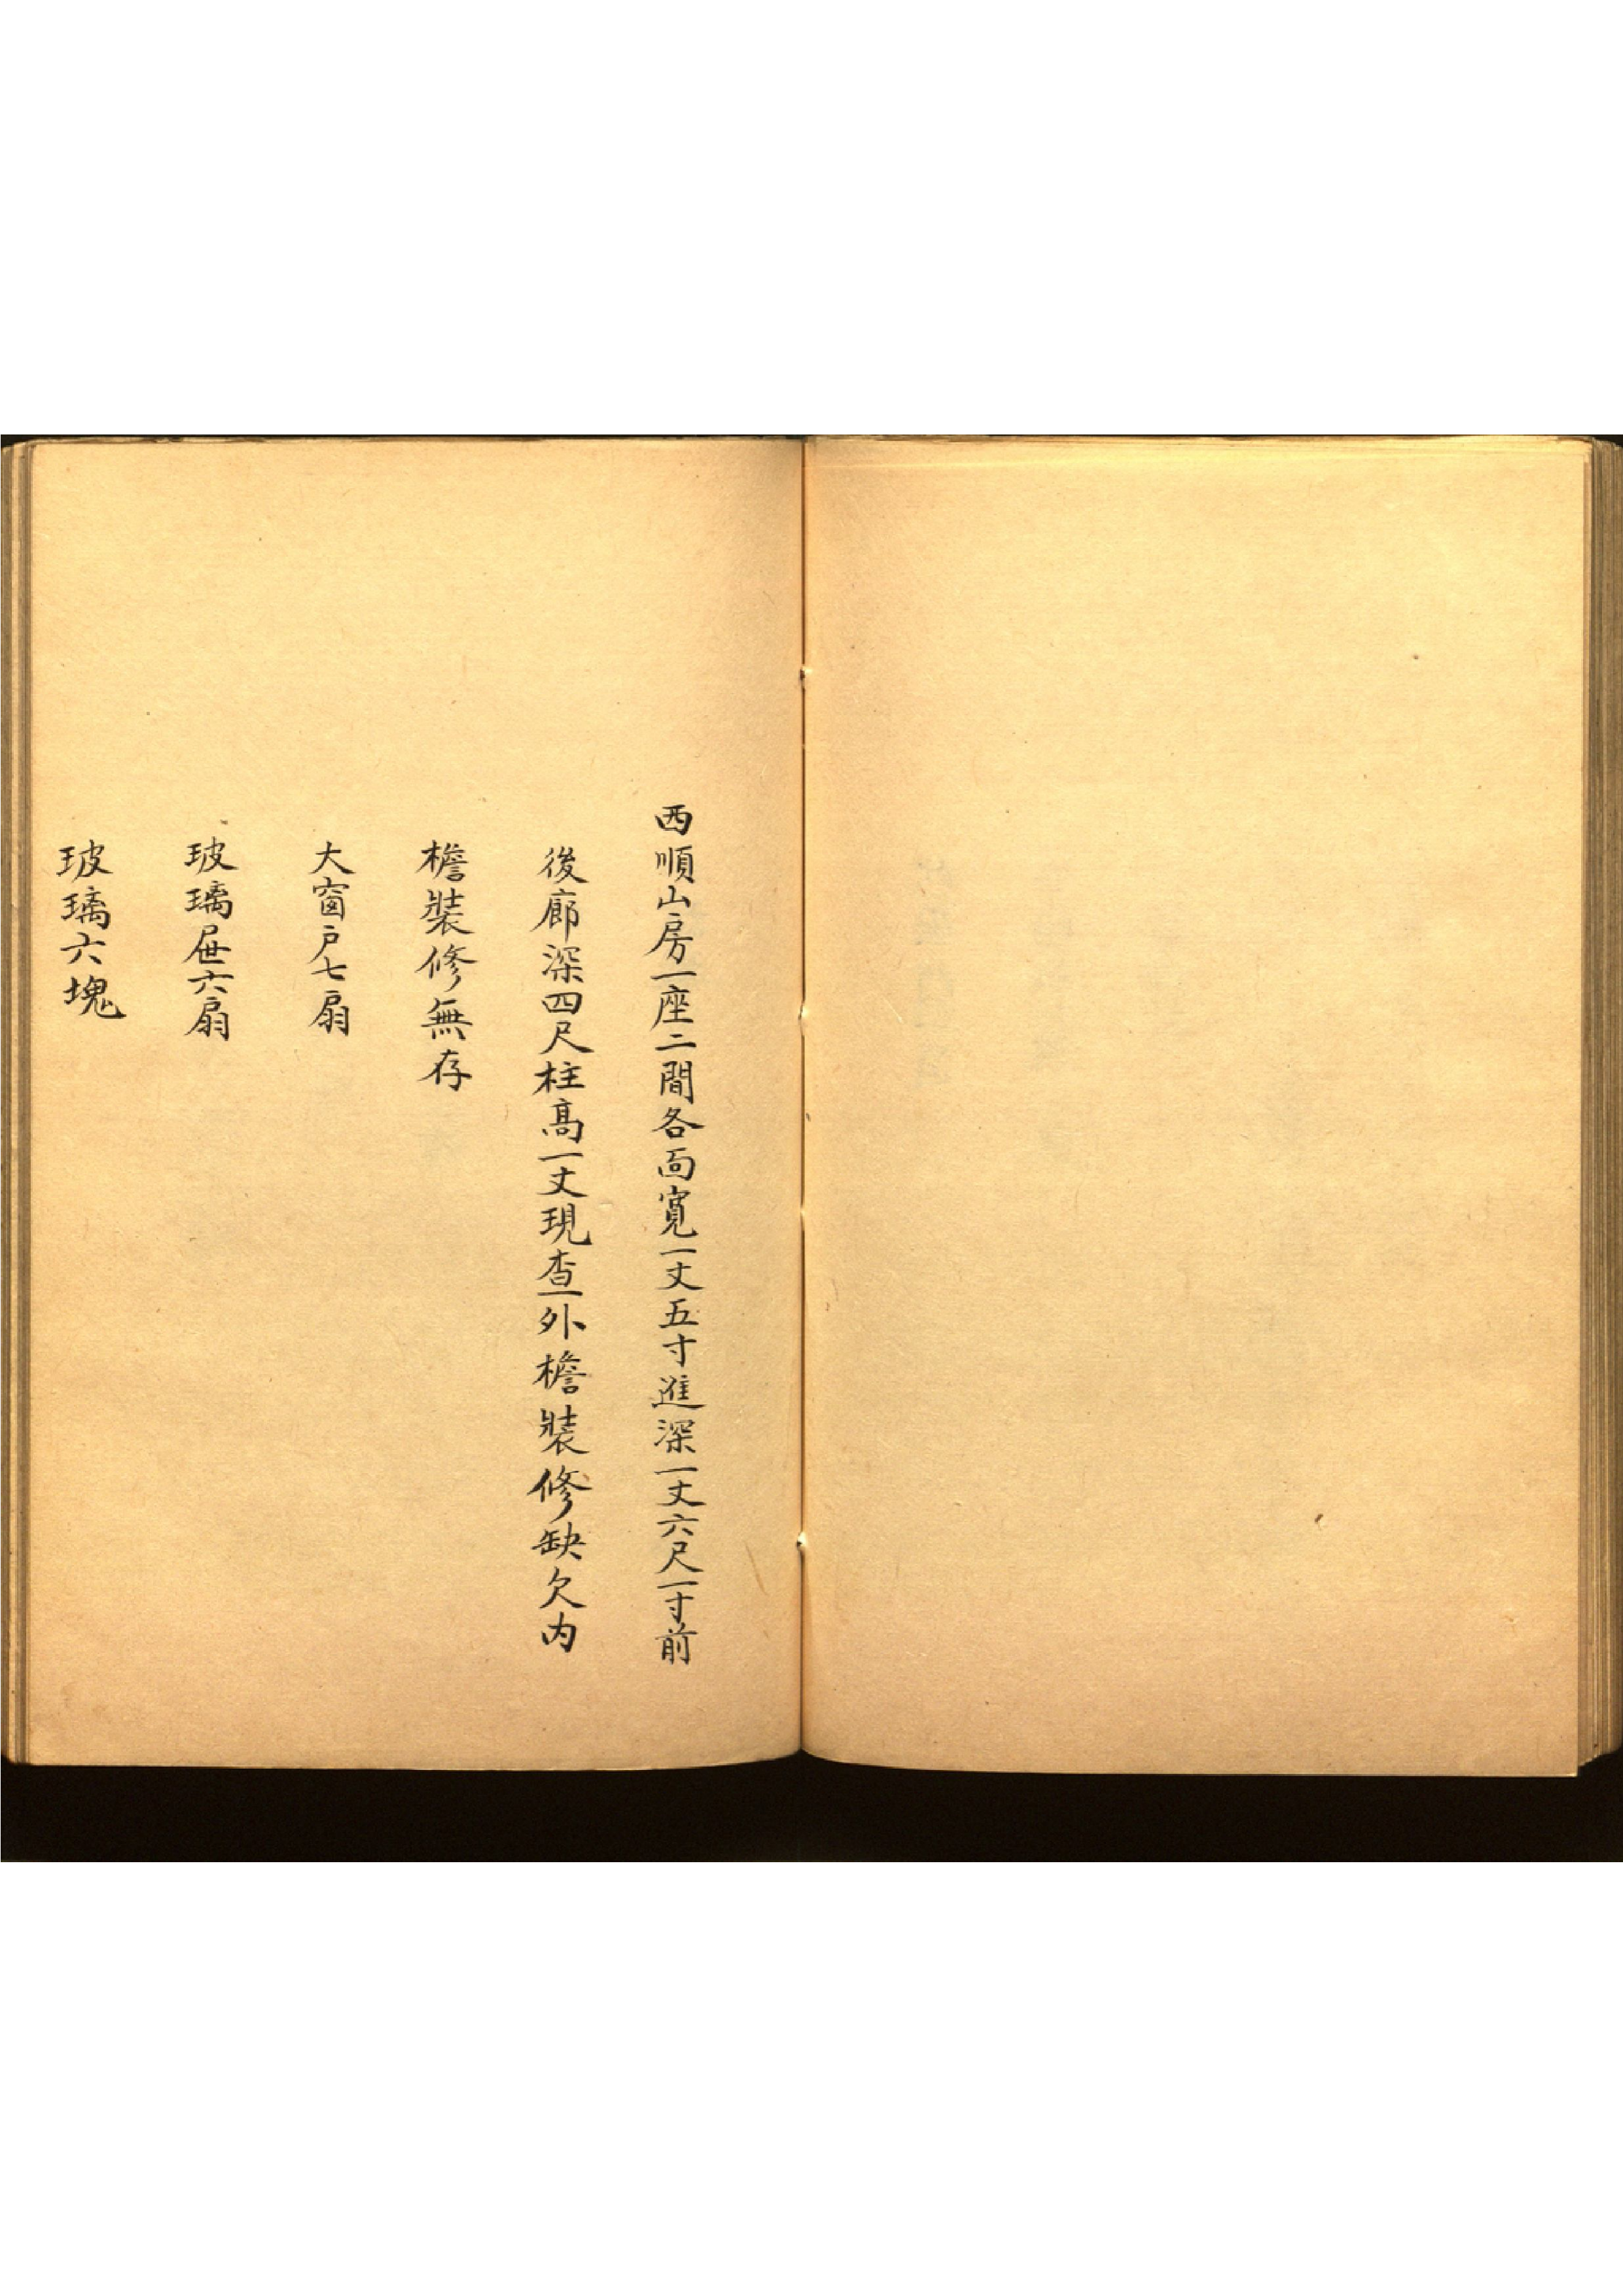 西順山房一座二間各面寬一丈五寸進深一丈六尺一寸前
後廊深四尺柱高一丈現查外檐裝修缺欠内
檐裝修無存
大窗户七扇
玻璃屉六扇
玻璃六塊